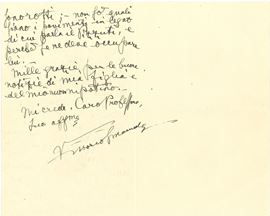 sono rotti; - non so quali
siano i pavimenti in legno
di cui parla il Pizzuti, e
perchè se ne deve occupare
lui. -
Mille grazie per le buone
notizie di mia figlia e
del mio nuovo nipotino.
Mi creda, Caro Professore,
Suo affmo
Vittorio Emanuele